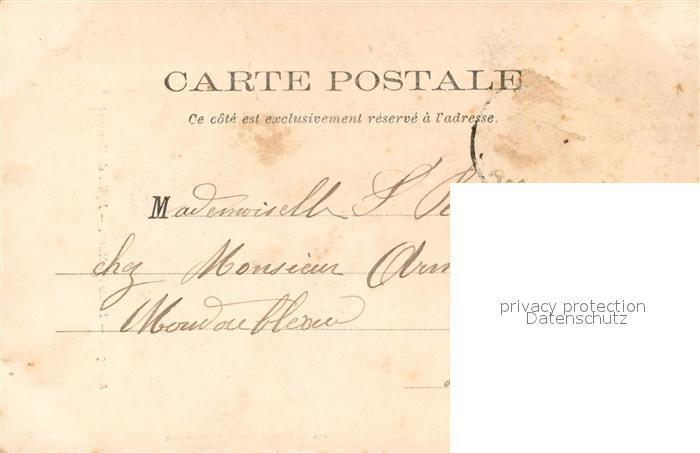 CARTE POSTALE
Ce côté est exclusivement réservé à l'adresse.
Mademoiselle S
chez Monsieur
Mondoubleau
privacy protection
Datenschutz